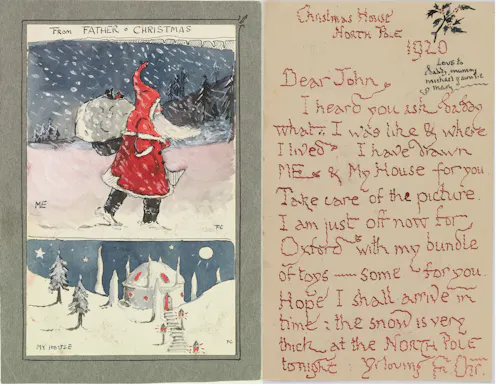 FROM FATHER CHRISTMAS
ME
FC
MY HOUSE
FC
Christmas House
NORTH POLE
1920
Love to
daddy, mummy
michael & auntie
mary
Dear John
I heard you ask daddy
what I was like & where
I lived. I have drawn
ME & My House for you.
Take care of the picture.
I am just off now for
Oxford with my bundle
of toys — some for you.
Hope I shall arrive in
time: the snow is very
thick at the NORTH POLE
tonight: Yr loving Fr. Chr.